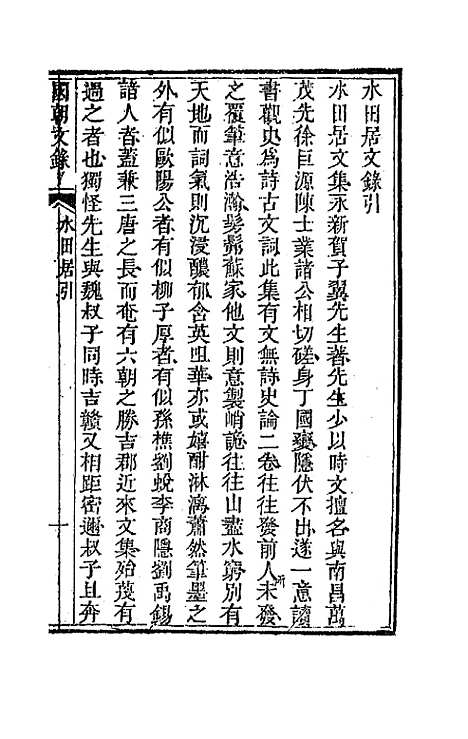 水田居文錄引
水田居文集永新賀子翼先生著先生少以時文擅名與南昌萬
茂先徐巨源陳士業諸公相切磋身丁國變隱伏不出遂一意讀
書觀史為詩古文詞此集有文無詩史論二卷往往發前人未發
所
之覆筆意浩瀚髣髴蘇家他文則意製峭詭往往山盡水窮別有
天地而詞氣則沉浸醲郁含英咀華亦或嬉酣淋漓蕭然筆墨之
外有似歐陽公者有似柳子厚者有似孫樵劉蛻李商隱劉禹錫
諸人者蓋兼三唐之長而奄有六朝之勝吉郡近來文集殆蔑有
過之者也獨怪先生與魏叔子同時吉贛又相距密邇叔子且奔
國朝文錄
水田居引
一